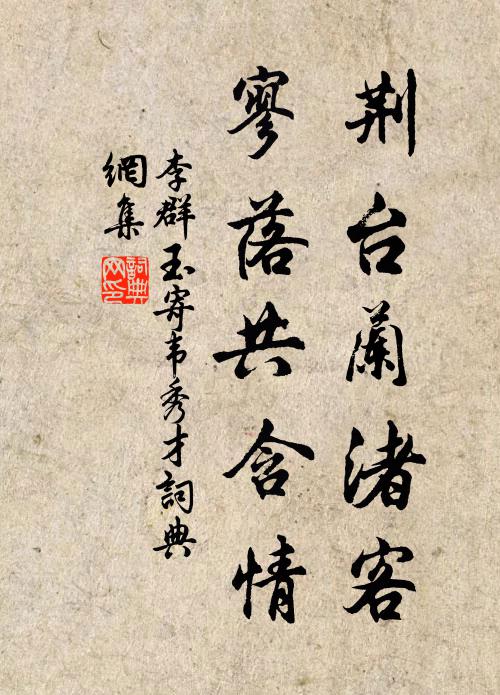 荆台蘭渚客
寥落共含情
李群玉寄韦秀才詞典
網集
詞典
网印